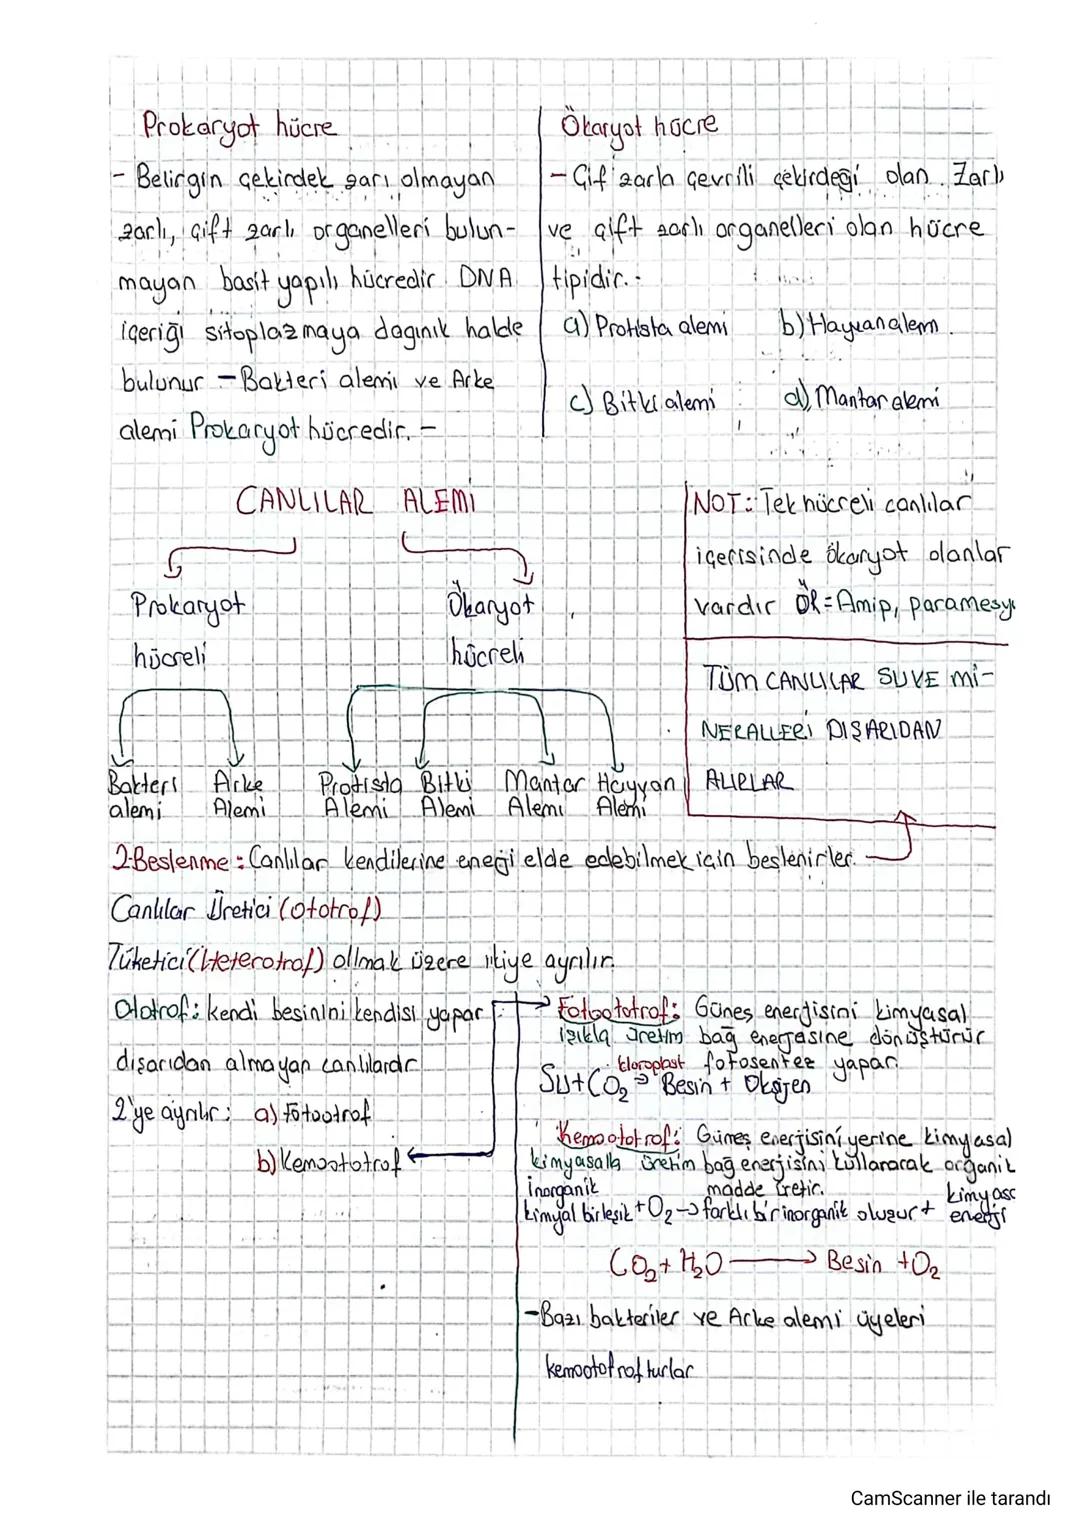 Prokaryot hücre
- Belirgin çekirdek zarı olmayan
zarlı, çift zarlı organelleri bulun-
mayan basit yapılı hücredir DNA
içeriği sitoplazmaya dagınık halde
bulunur - Bakteri alemi ve Arke
alemi Prokaryot hücredir. -
Ökaryot hücre
- Çif zarla çevrili çekirdeği olan. Zarlı
ve çift zarlı organelleri olan hücre
tipidir. -
a) Protista alemi b) Hayvan alem.
c) Bitki alemi d) Mantar alemi
CANLILAR ALEMİ
Prokaryot
hücreli
Ökaryot
hücreli
Bakteri alemi
Arke Alemi
Protista Alemi
Bitki Alemi
Mantar Alemi
Hayvan Alemi
NOT: Tek hücreli canlılar
içerisinde ökaryot olanlar
vardır ÖR = Amip, paramesyu
TÜM CANLILAR SU VE Mİ-
NERALLERİ DIŞARIDAN
ALIRLAR
2-Beslenme: Canlılar kendilerine enerji elde edebilmek için beslenirler.
Canlılar Üretici (ototrof)
Tüketici (Heterotrof) ollmak üzere ikiye ayrılır.
Ototrof: kendi besinini kendisi yapar
dışarıdan almayan canlılardır
2'ye ayrılır: a) Fotootrof
b) Kemoototrof
Fotoototrof: Güneş enerjisini kimyasal
ışıkla üretim bağ enerjasine dönüştürür
kloroplast fotosentez yapar.
Su + CO2 → Besin + Oksijen
Kemoototrof: Güneş enerjisini yerine kimyasal
kimyasalla üretim bağ enerjisini kullanarak organik
madde üretir.
inorganik
kimyal birleşik + O2 → farklı bir inorganik oluşur + kimyasa enerji
CO2 + H2O → Besin + O2
- Bazı bakteriler ve Arke alemi üyeleri
kemoototrofturlar
CamScanner ile tarandı